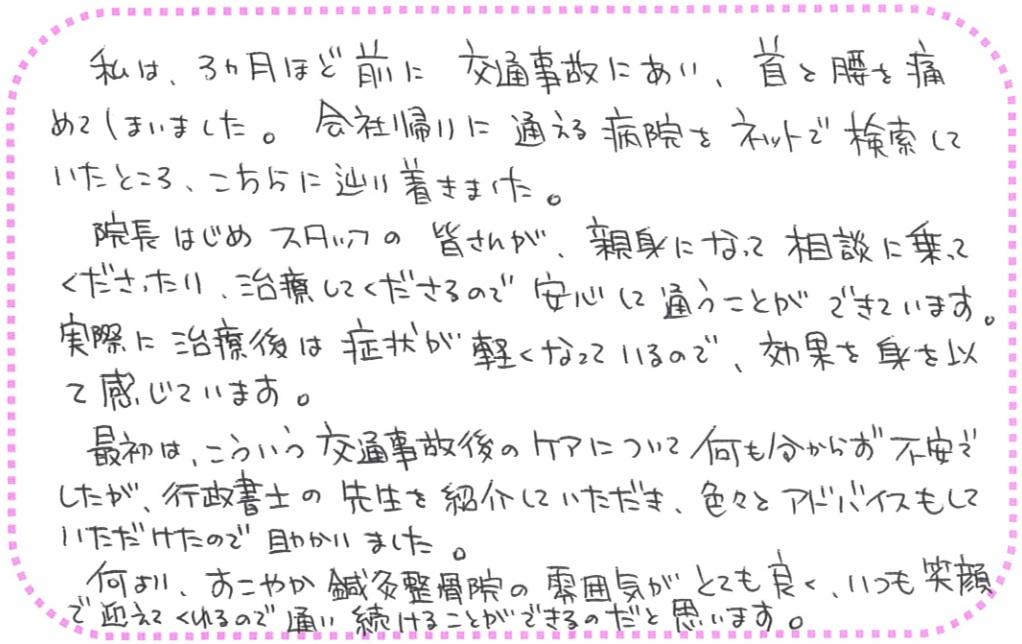 私は、3ヵ月ほど前に 交通事故にあい、首と腰を痛
めてしまいました。会社帰りに 通える病院を ネットで 検索して
いたところ、こちらに辿り着きました。
院長はじめ スタッフの 皆さんが、親身になって 相談に乗って
くださったり、治療してくださるので 安心して 通うことが できています。
実際に 治療後は 症状が 軽くなっているので、効果を身を以
て感じています。
最初は、こういう交通事故後のケアについて 何も分からず 不安で
したが、行政書士の 先生を紹介していただき、色々とアドバイスもして
いただけたので 助かりました。
何より、すこやか鍼灸整骨院の 雰囲気が とても良く、いつも笑顔
で迎えてくれるので通い続けることができるのだと思います。